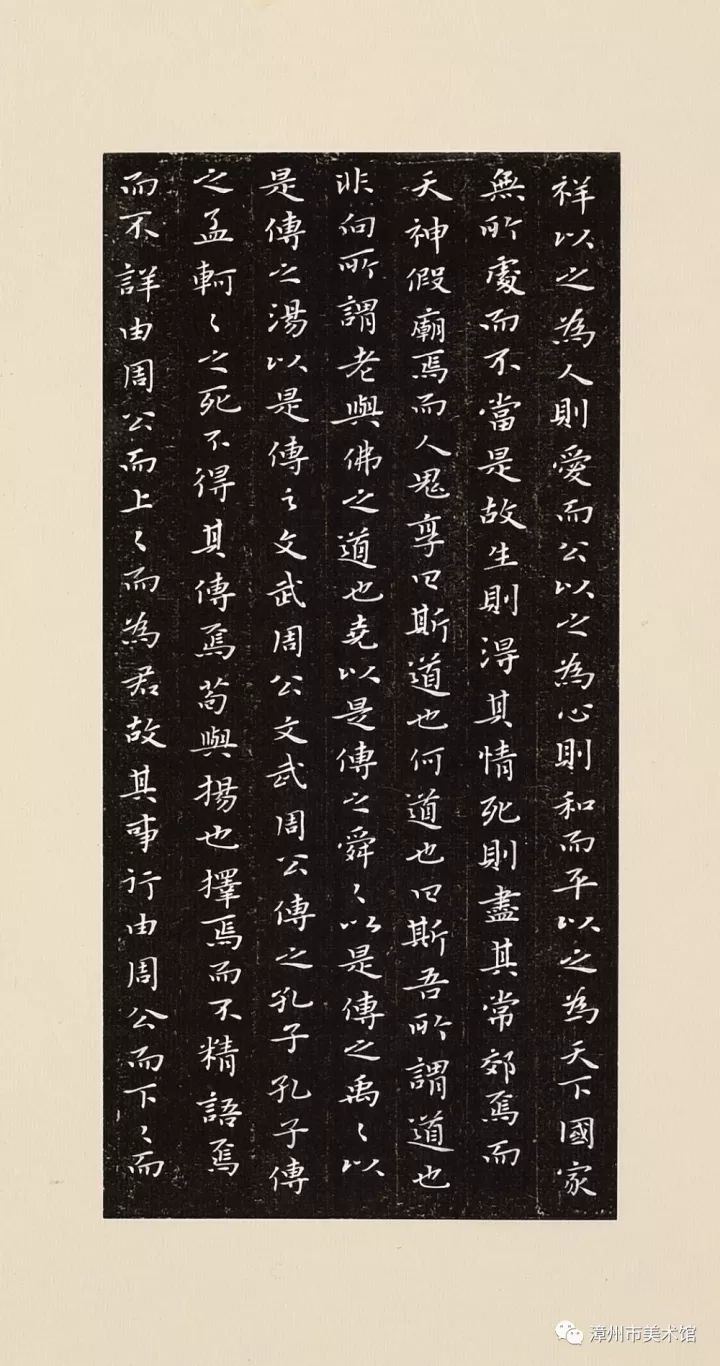 祥以之為人則愛而公以之為心則和而平以之為天下國家
無所處而不當是故生則得其情死則盡其常郊焉而
天神假廟焉而人鬼享曰斯道也何道也曰斯吾所謂道也
非向所謂老與佛之道也堯以是傳之舜〻以是傳之禹〻以
是傳之湯以是傳之文武周公文武周公傳之孔子孔子傳
之孟軻〻之死不得其傳焉荀與揚也擇焉而不精語焉
而不詳由周公而上〻而為君故其事行由周公而下〻而
漳州市美术馆